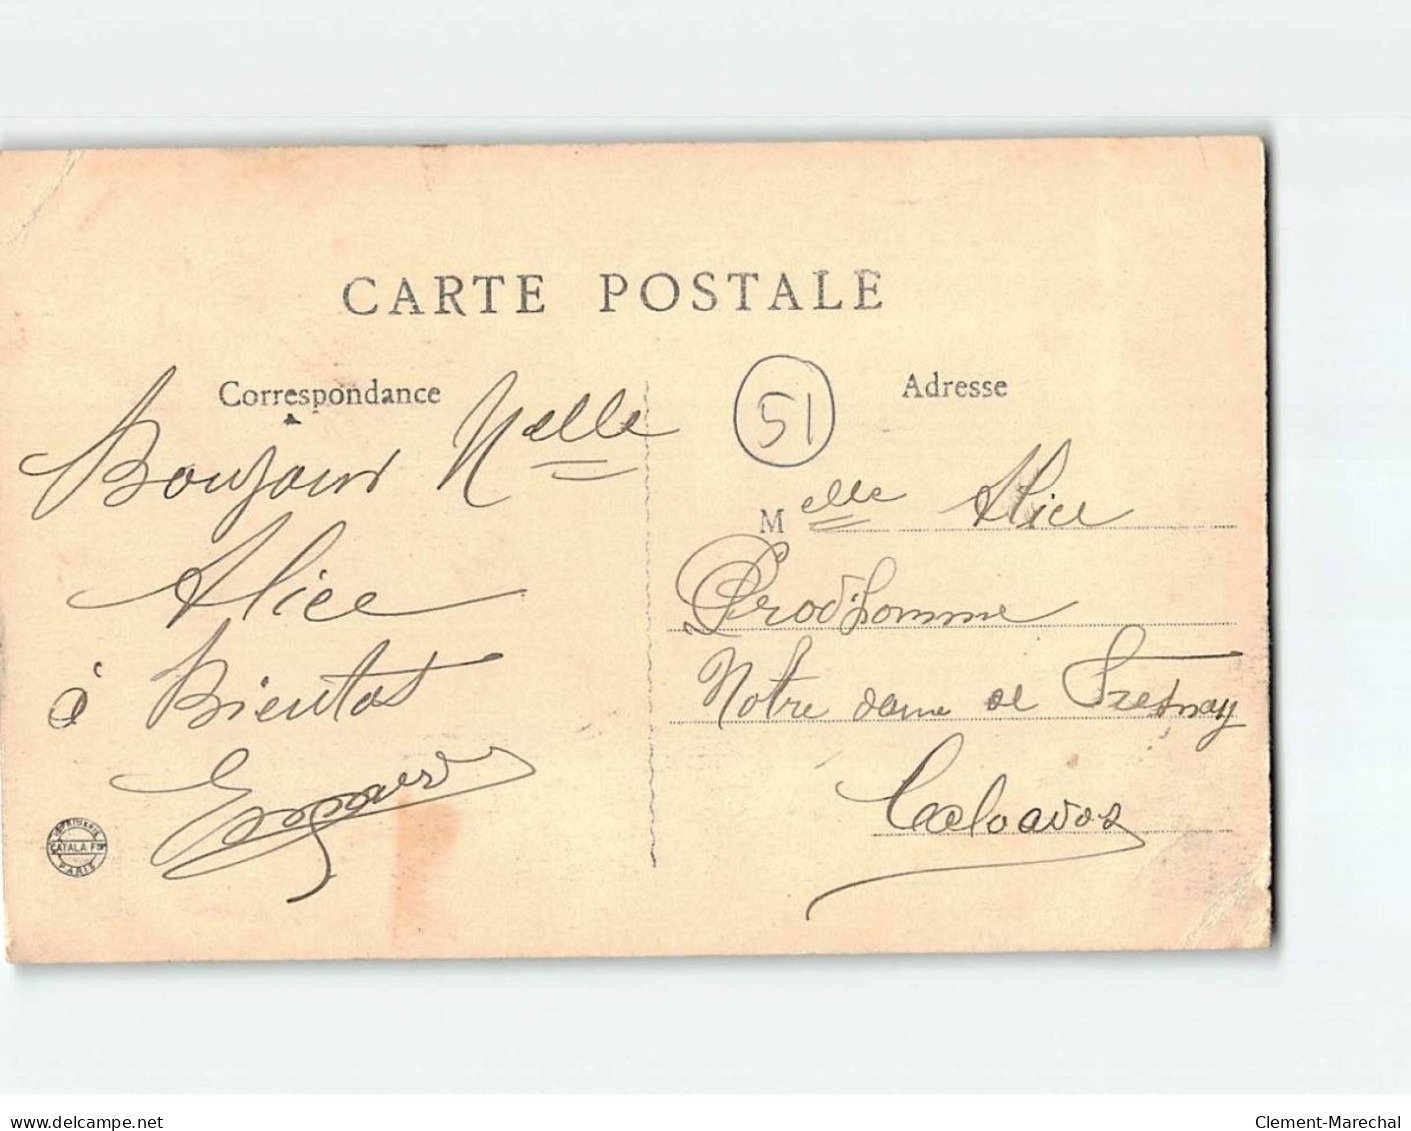 CARTE POSTALE
Correspondance
Bonjour Melle
Alice
à Bientot
IMPRIMERIE
CATALA FRES
PARIS
51
Adresse
Melle Alice
Prod'homme
Notre dame de Fresnay
Calvados
delcampe.net
Clement-Marechal